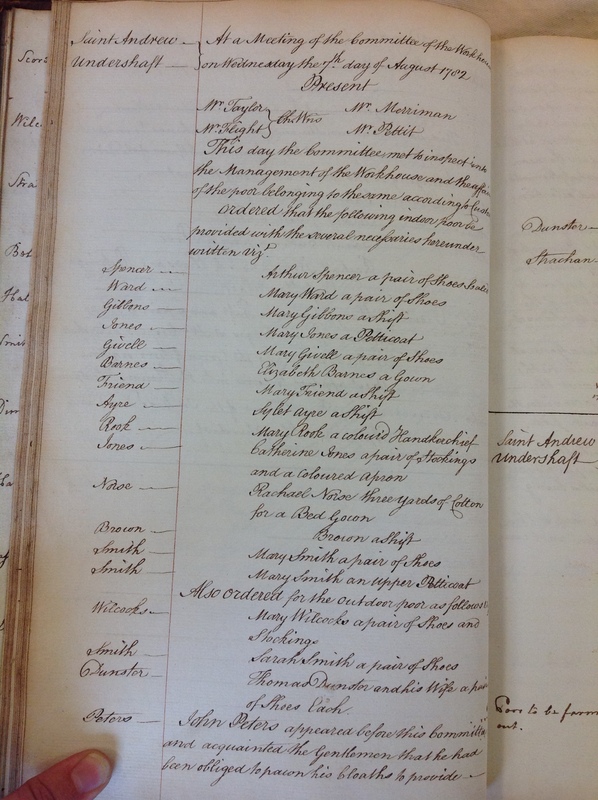 Saint Andrew Undershaft
At a Meeting of the Committee of the Workhouse
on Wednesday the 7th day of August 1782
Present
Mr. Taylor } Ch: Wns Mr. Merriman
Mr. Flight Mr. Pettit
This day the Committee met to inspect into
the Management of the Workhouse and the affairs
of the poor belonging to the same according to
Ordered that the following indoor poor be
provided with the several necessaries hereunder
written vizt.
Spencer Arthur Spencer a pair of Shoes
Ward Mary Ward a pair of Shoes
Gibbons Mary Gibbons a Shift
Jones Mary Jones a Petticoat
Givell Mary Givell a pair of Shoes
Barnes Elizabeth Barnes a Gown
Friend Mary Friend a Shift
Ayre Ayre a Shift
Rook Mary Rook a colour'd Handkerchief
Jones Catherine Jones a pair of Stockings
and a Coloured Apron
Noise Rachael Noise three yards of Cotton
for a Bed Gown
Brown Brown a Shift
Smith Mary Smith a pair of Shoes
Smith Mary Smith an Upper Petticoat
Also Ordered for the Outdoor poor as follows
Wilcocks Mary Wilcocks a pair of Shoes and
Stockings
Smith Sarah Smith a pair of Shoes
Dunster Thomas Dunster and his Wife a pair
of Shoes Each
Peters John Peters appeared before this Committee
and acquainted the Gentlemen that he had
been obliged to pawn his Cloaths to provide
Dunster
Strachan
Saint Andrew
Undershaft
Poor to be farm
out.